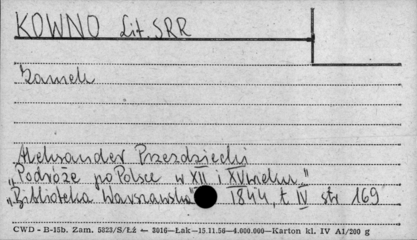 KOWNO Lit. SRR
Zamek
Aleksander Przezdziecki
„Podróże po Polsce w XII i XV wieku"
„Biblioteka Warszawska" 1844, t. IV str 169
CWD - B-15b. Zam. 5823/S/Łź — 3016—Łak—15.11.56—4.000.000—Karton kl. IV A1/200 g